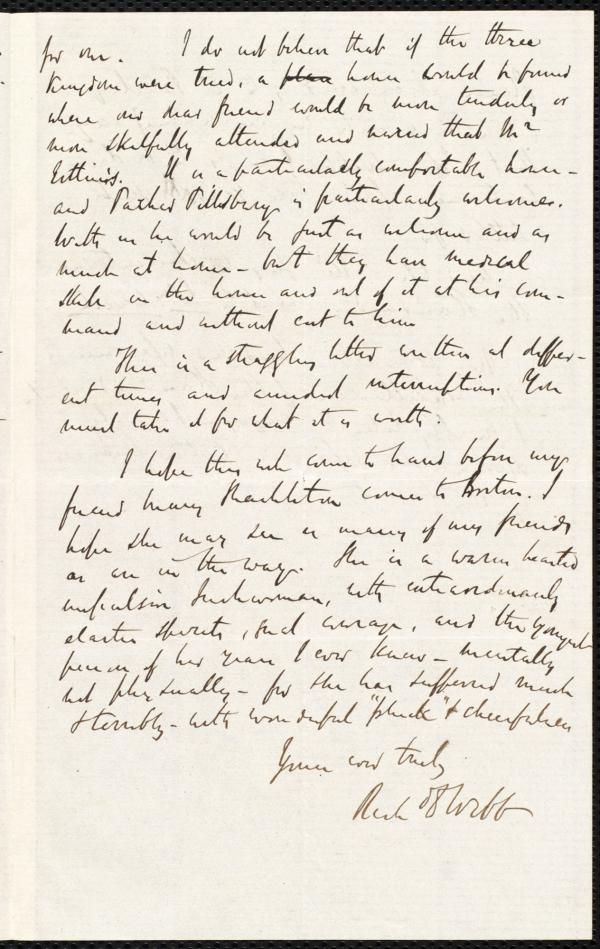 for one. I do not believe that if the three
Kingdoms were tried, a place house would be found
where our dear friend would be more tenderly or
more skilfully attended and nursed than Mr
Estlin's. It is a particularly comfortable house -
and Parker Pillsbury is particularly welcome.
With us he would be just as welcome and as
much at home - but they have medical
skill in the house and out of it at his com-
mand and without cost to him
This is a straggling letter written at differ-
ent times and amidst interruptions. You
must take it for what it is worth.
I hope this will come to hand before my
friend Mary Shackleton comes to Boston. I
hope she may see as many of my friends
as are in the way. She is a warm hearted
impulsive Irishwoman, with extraordinarily
elastic spirits, great courage, and the youngest
person of her years I ever knew - mentally
not physically - for she has suffered much
& terribly - with wonderful "pluck" & cheerfulness
Yours ever truly
Rich D Webb